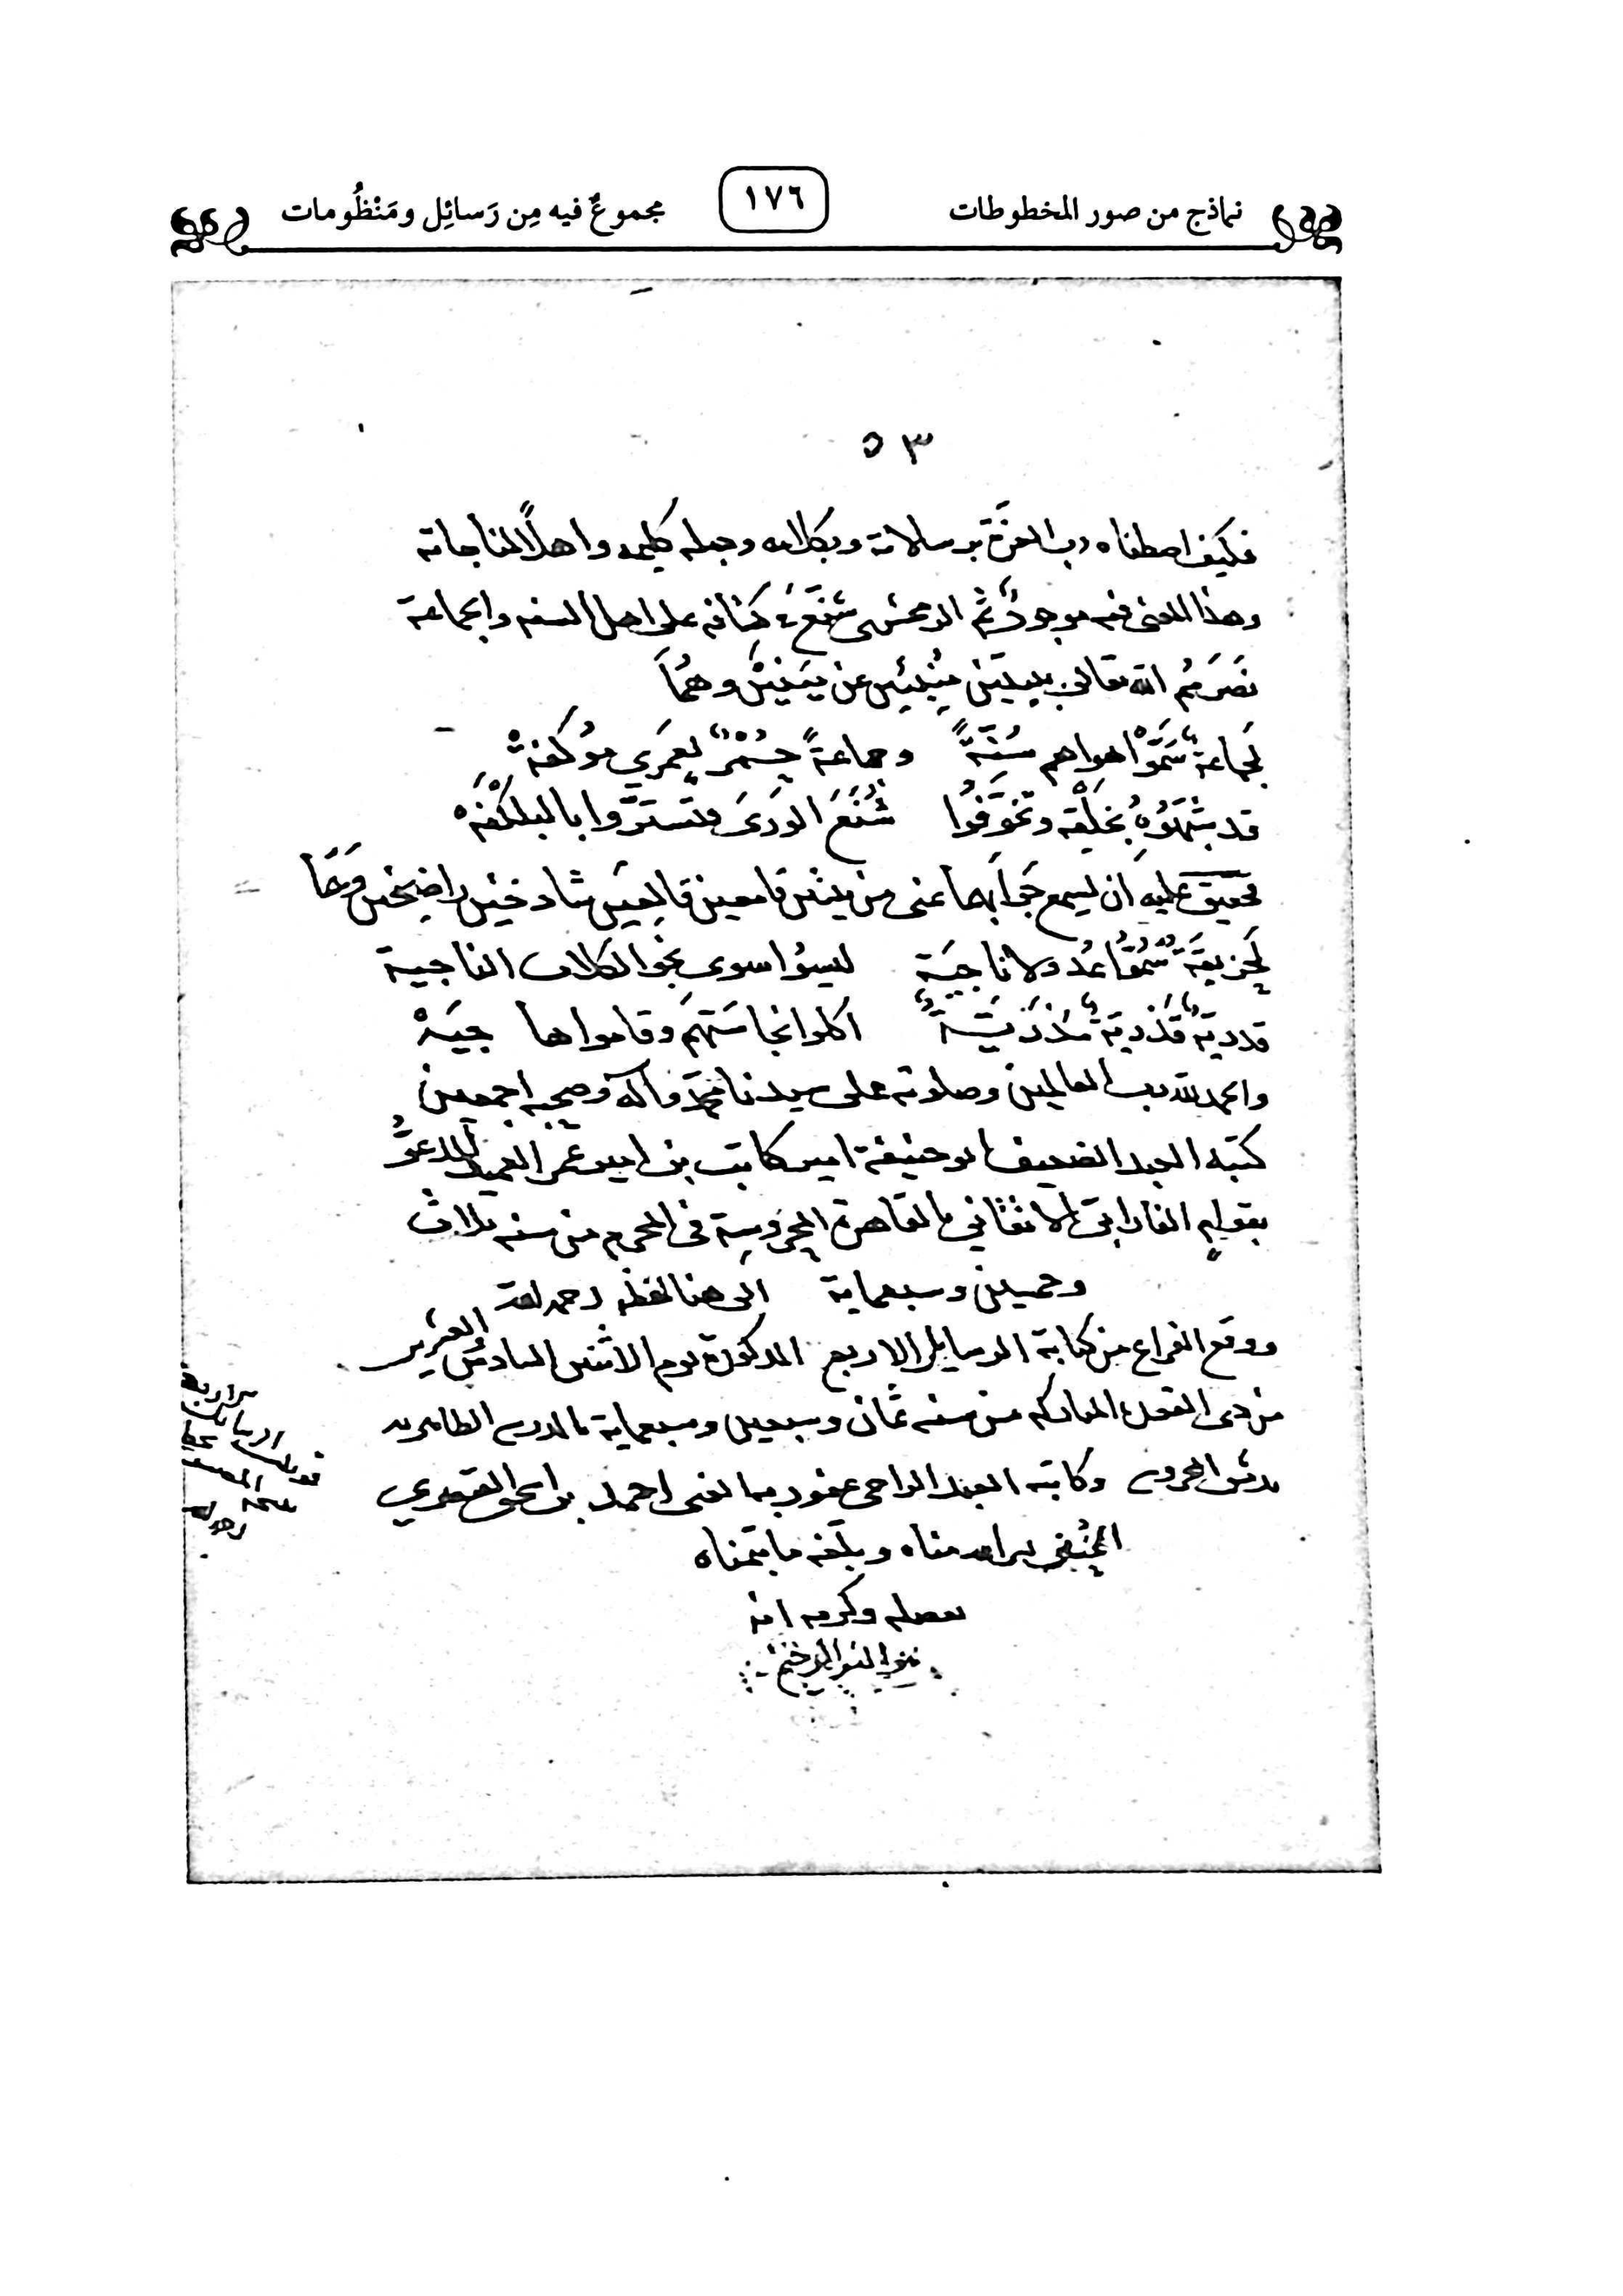 نماذج من صور المخطوطات
١٧٦
مجموعٌ فيه مِن رَسائِل ومَنْظُومات
٥٣
فكيف اصطفاه رب العزة برسالاته وبكلامه وجعله كليمه واهلاً لمناجاته
وهذا المعنى فيه موجود ثم الزمخشري شنع في كشافه على اهل السنه والجماعة
نصرهم الله تعالى ببيتين وهما
لجماعةٌ سَمَّوْا هواهم سُنَّةً وجماعةٌ حُمُرٌ لعمري موكفهْ
قد شبَّهُوهُ بخلقه وتخوَّفُوا شُنَعَ الورَى فتستَّروا بالبلكفهْ
فحقيق عليه ان يسمع جوابهما عني من بيتين قامعين شادخين
ليسوا سوى نجو الكلاب الناجية
اكلوا نجاستهم وقاموا ها جيهْ
والحمد لله رب العالمين وصلوته على سيدنا محمد وآله وصحبه اجمعين
كتبه العبد الضعيف ابو حنيفة امير كاتب بن امير عمر العميد المدعو
بقوام الفارابي الاتقاني بالقاهرة المحروسة في المحرم من سنه ثلاث
وخمسين وسبعماية الى هنا لفظه رحمه الله
ووقع الفراغ من كتابة الرسايل الاربع المذكورة يوم الاثنين السادس والعشرين
من ذي القعدة المباركه من سنه ثمان وسبعين وسبعماية بالمدرسه الظاهريه
بدمشق المحروسه وكاتبه العبد الراجي عفو ربه الغني احمد بن اسحق القيصري
الحنفي يسر الله مناه وبلغه ما يتمناه
بفضله وكرمه انه